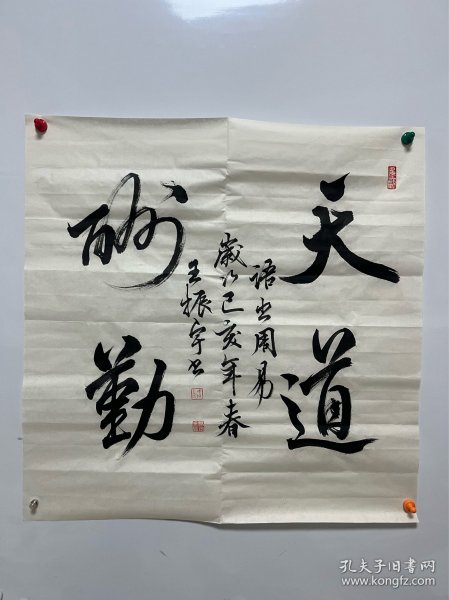 天道
酬勤
语出周易
歲次己亥年春
王振宇书
孔夫子旧书网
www.kongfz.com